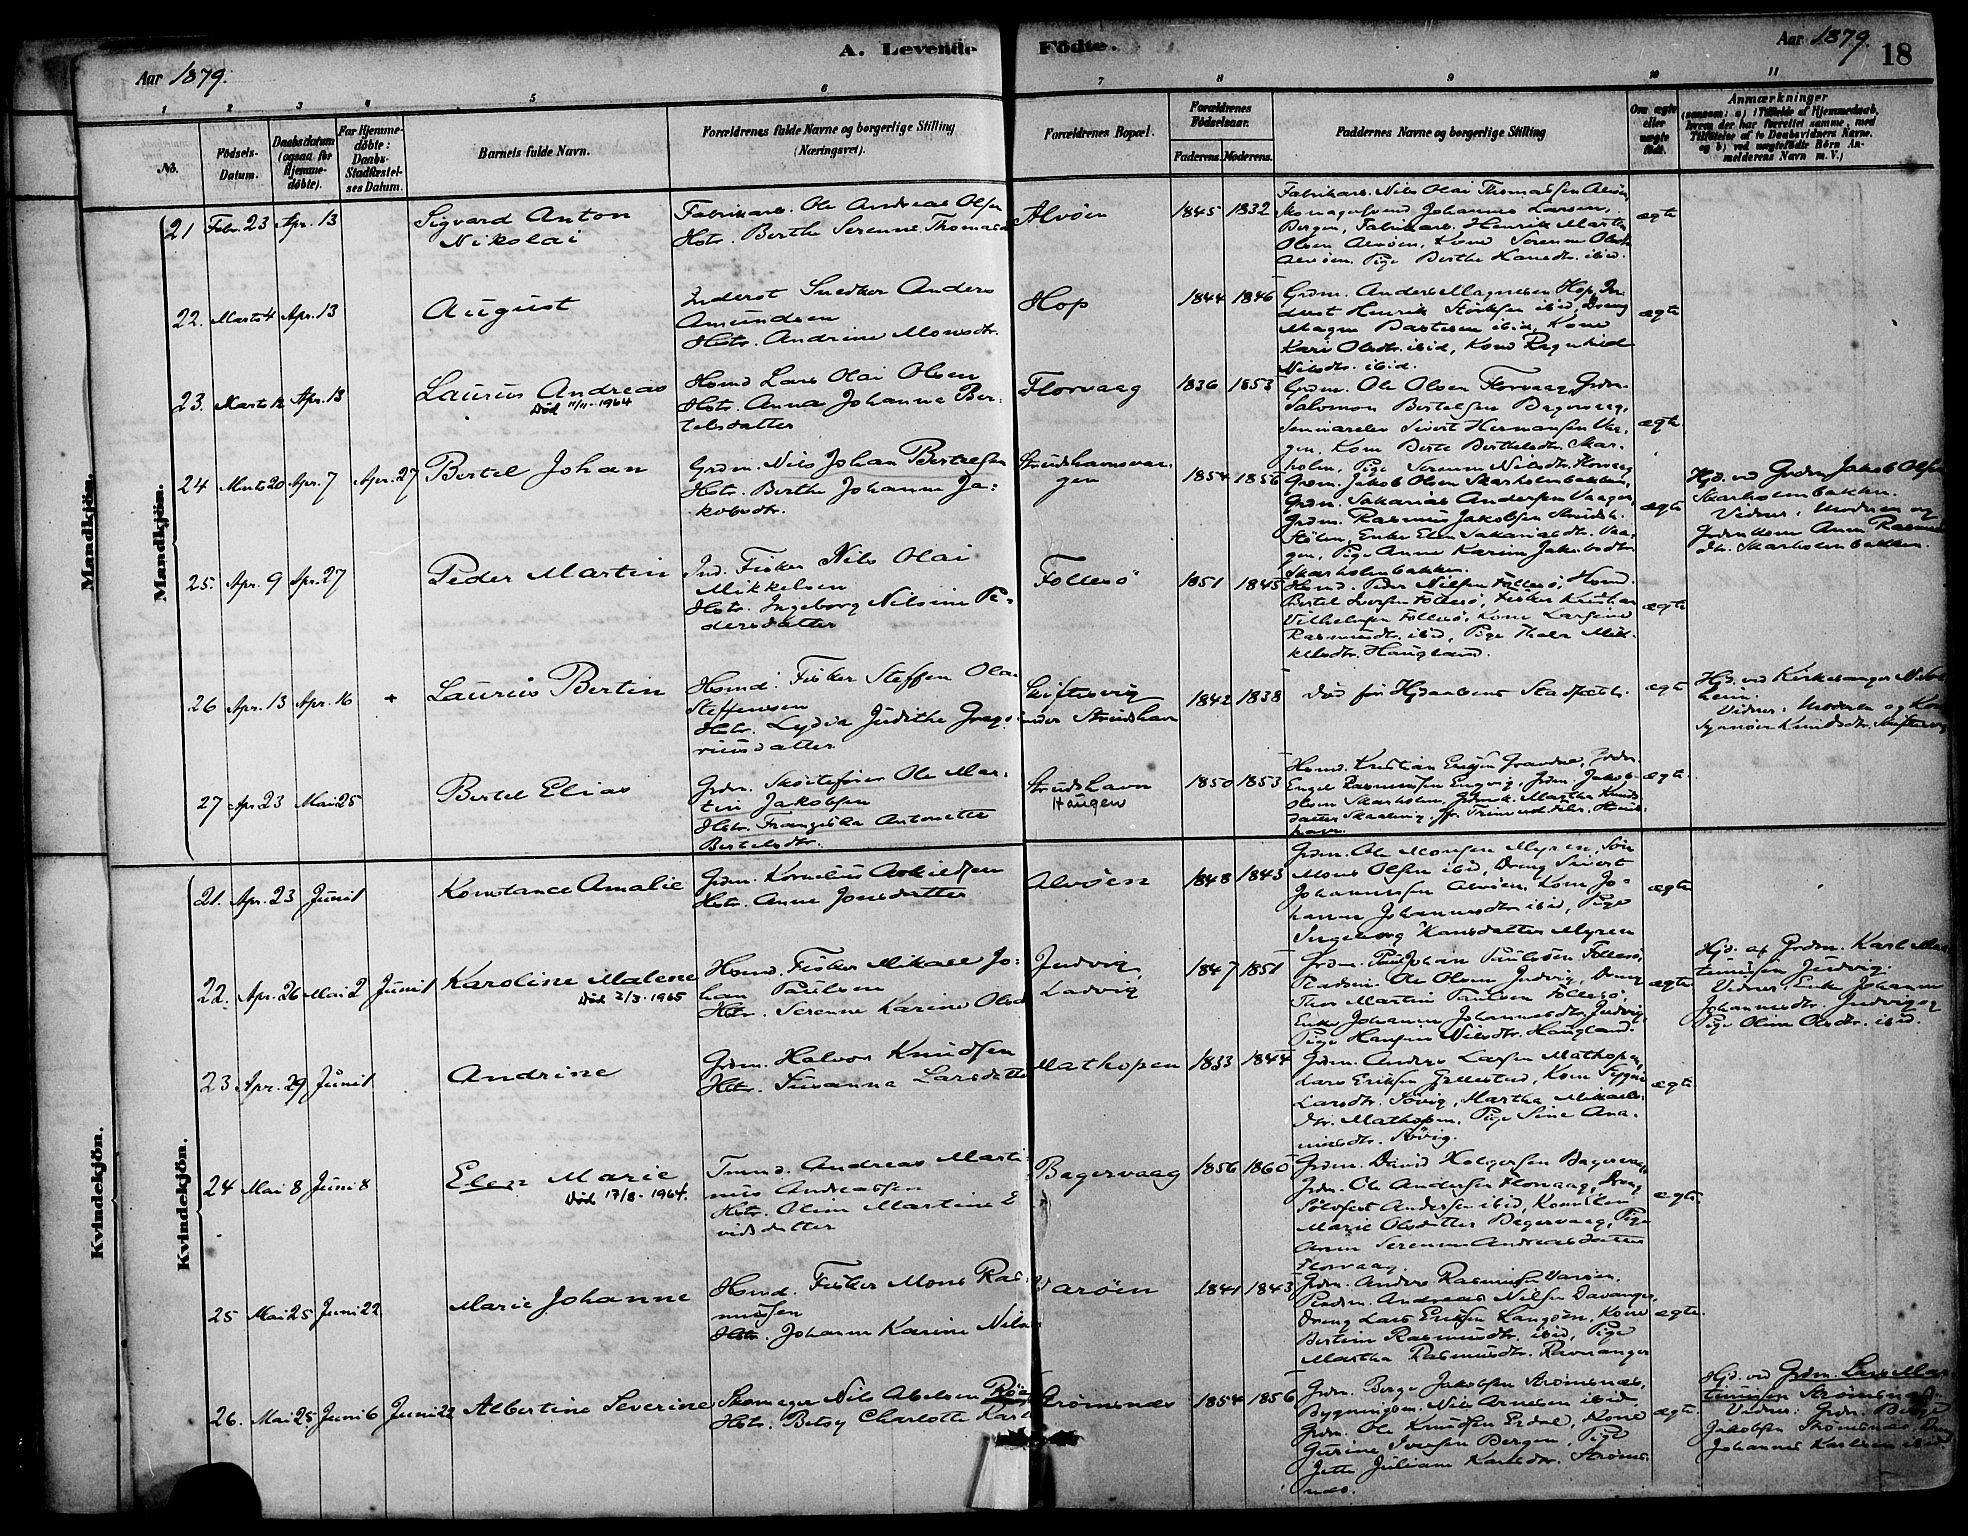 A. Levende
Födte.
Aar 1879.
Aar 1879.
18
1 2 3 4 5 6 7 8 9 10 11
No.
Födsels-
Datum.
Daabsdatum
(ogsaa for
Hjemme-
döbte).
For Hjemme-
döbte:
Daabs-
Stadfæstel-
ses Datum.
Barnets fulde Navn.
Forældrenes fulde Navne og borgerlige Stilling
(Næringsvei).
Forældrenes Bopæl.
Forældrenes
Födselsaar.
Faderens. Moderens.
Faddernes Navne og borgerlige Stilling
Om ægte
eller
uægte
födt.
Anmærkninger
(saasom: a) i Tilfælde af Hjemmedaab,
hvem der har forrettet samme, med
Tilföielse af to Daabsvidners Navne.
og b) ved uægtefödte Börn An-
melderens Navn m. V.)
Mandkjön.
Mandkjön.
21 Febr. 23 Apr. 13
Sigvard Anton
Nikolai
Fabrikarb. Ole Andreas Olsen
Hstr. Berthe Serenne Thomasd
Alvöen
1845 1832
Fabrikarb. Nils Olai Thomassen Alvöen
Skomagersvend Johannes Larsen,
Bergen, Fabrikarb. Henrik Martin
Olsen Alvöen, Kone Serenne Olsdtr
Alvöen. Pige Berthe Hansdtr. ibid.
ægte
22. Marts 4 Apr. 13
August
Inderst Snedker Anders
Amundsen
Hstr. Andrine Monsdtr.
Hop
1844 1846
Grdm. Anders Magnesen Hop, In-
derst Henrik ibid, Dreng
Magne Bastesen ibid, Kone
Kari Olsdtr. ibid, Kone Ragnhild
Nilsdtr. ibid.
ægte
23. Marts 12 Apr. 13
Laurus Andreas
Död 11/11-1964
Hsmd Lars Olai Olsen
Hstr. Anna Johanna Ber-
telsdatter
Florvaag
1836 1853
Grdm. Ole Olsen Florvaag, Grdm.
Salomon Bertelsen Bagervaag,
Seminarelev Sivert Hermansen Vaa-
gen, Kone Berte Bertelsdtr. Skar-
holm, Pige Serenne Nilsdtr. Florvaag
ægte
24 Marts 20 Apr. 7 Apr. 27
Bertel Johan
Grdm. Nils Johan Bertelsen
Hstr. Berthe Johanna Ja-
kobsdtr.
Strudshavnsvaa-
gen
1854 1856
Grdm. Jakob Olsen Skarholmbakken,
Grdm. Sakarias Andersen Vaagen,
Grdm. Rasmus Jakobsen Strudsh.
Stölen, Enke Elen Sakariasdtr. Vaa-
gen, Pige Anne Karine Jakobsdtr.
Skarholmbakken.
ægte
Hjd. ved Grdm. Jakob Olsen
Skarholmbakken.
Vidner: Moderen og
Grdmkone Anna Rasmus
dtr. Skarholmbakken.
25. Apr. 9 Apr. 27
Peder Martin
Ind. Fisker Nils Olai
Mikkelsen
Hstr. Ingeborg Nilsine Pe-
dersdatter
Follesö
1851 1845
Hsmd. Peder Nilsen Follesö, Hsmd.
Bertel Iversen Follesö, Fisker Kristian
Vilhelmsen Follesö, Kone Larsine
Rasmusdtr. ibid, Pige Thala Mik-
kelsdtr. Haugland.
ægte
26 Apr. 13 Apr. 16 +
Laurus Bertin
Hsmd. Fisker Steffen Olai
Steffensen
Hstr. Lydia Judithe Grego-
riusdatter
Skiftesvig
under Strudshavn
1842 1838
Död för Hjdaabens Stadfæst.
ægte
Hjd. ved Kirkesanger Nils
Vidner: Moderen og Kone
Synnöve Knudsdtr. Skiftesvig
27 Apr. 23 Mai 25
Bertel Elias
Grdm. Skøitefører Ole Mar-
tin Jakobsen
Hstr. Franziska Antonette
Bertelsdtr.
Strudshavn
Haugen
1850 1853
Hsmd. Kristian Eriksen
Engel Rasmussen Engevig, Grdm. Jakob
Olsen Skarholm, Grdmk. Martha Knuds
datter
havn.
ægte
Kvindekjön.
Kvindekjön.
21. Apr. 23 Juni 1
Konstance Amalie
Grdm. Kornelius Askildsen
Hstr. Anne Jonsdatter
Alvöen
1848 1843
Grdm. Ole Monsen Myren, Sön
Mons Olsen ibid, Dreng Sivert
Johannessen Alvöen, Kone Jo-
hanne Johannesdtr. ibid, Pige
Ingeborg Hansdatter Myren
ægte
22. Apr. 26 Mai 2 Juni 1
Karoline Malene
Död 2/3-1965
Hsmd. Fisker Mikael Jo-
han Paulsen
Hstr. Serenne Karine Olsd
Judvig
Ladvig
1847 1851
Grdm. Paul Johan Paulsen Follesö,
Pladsm. Ole Olsen Judvig, Dreng
Thor Martin Paulsen Follesö,
Enke Johanna Johannesdtr. Judvig,
Pige Hansine Nilsdtr. Haugland.
ægte
Hjd. af Grdm. Karl Mar
tinussen Judvig.
Vidner: Enke Johanne
Johannesdtr. Judvig og
Pige Oline Olsdtr. ibid.
23 Apr. 29 Juni 1
Andrine
Grdm. Halvor Knudsen
Hstr. Susanna Larsdatter
Mathopen
1833 1844
Grdm. Anders Larsen Mathopen,
Lars Eriksen Gjellestad, Kone
Larsdtr. Sövig, Martha Mikaels-
dtr. Mathopen, Pige Sine Ana-
niasdtr. Sövig.
ægte
24 Mai 8 Juni 8
Elen Marie
Död 17/8-1964.
Tmnd. Andreas Marti-
nus Andreassen
Hstr. Oline Martine E
vidsdatter
Bagervaag
1856 1860
Grdm. David Holgersen Bagervaag,
Grdm. Ole Andersen Florvaag, Dreng
Sölvfest Andersen ibid, Kone Elen
Marie Olsdatter Bagervaag, Pige
Anne Serenne Andreasdatter
Florvaag.
ægte
25 Mai 25 Juni 22
Marie Johanne
Hsmd. Fisker Mons Ras-
mussen
Hstr. Johanna Karine Nils
Varöen
1841 1843
Grdm. Anders Rasmussen Varöen,
Pladsm. Andreas Nilsen Davanger,
Dreng Lars Eriksen Langöen, Kone
Bertine Rasmusdtr. ibid, Pige
Martha Rasmusdtr. Ravnanger
ægte.
26. Mai 25 Juni 6 Juni 22
Albertine Severine
Skomager Nils Abelsen Röa
Hstr. Betsy Charlotte Karls
Strömsnæs
1854 1856
Grdm. Berge Jakobsen Strömsnæs,
Bygningssm. Nils Arnesen ibid
Grdm. Ole Knudsen Erdal, Kone
Gurine Iversen Bergen, Pige
Jette Juliane Karlsdtr. Ströms-
næs.
ægte.
Hjd. ved Grdm. Lars Mar
tinussen Strömsnæs.
Vidner: Grdm. Berge
Jakobsen Strömsnæs,
Johannes Karlsen ibid